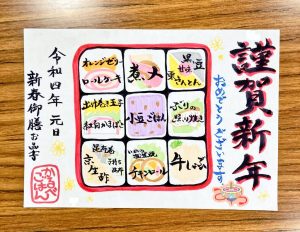 謹賀新年
おめでとうございます
黒豆
栗きんとん
煮〆
オレンジゼリー
ロールケーキ
ぶりの
照り焼き
小豆ごはん
出汁巻き玉子
紅白かまぼこ
牛しぐれ
チキンロール
京生酢
令和四年 元日
新春御膳お品書